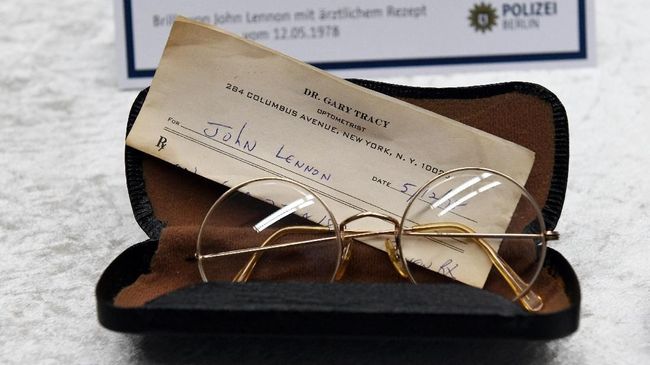 Brille von John Lennon mit ärztlichem Rezept
vom 12.05.1978
POLIZEI
BERLIN
DR. GARY TRACY
OPTOMETRIST
284 COLUMBUS AVENUE, NEW YORK, N. Y.
FOR JOHN LENNON
DATE
Rx